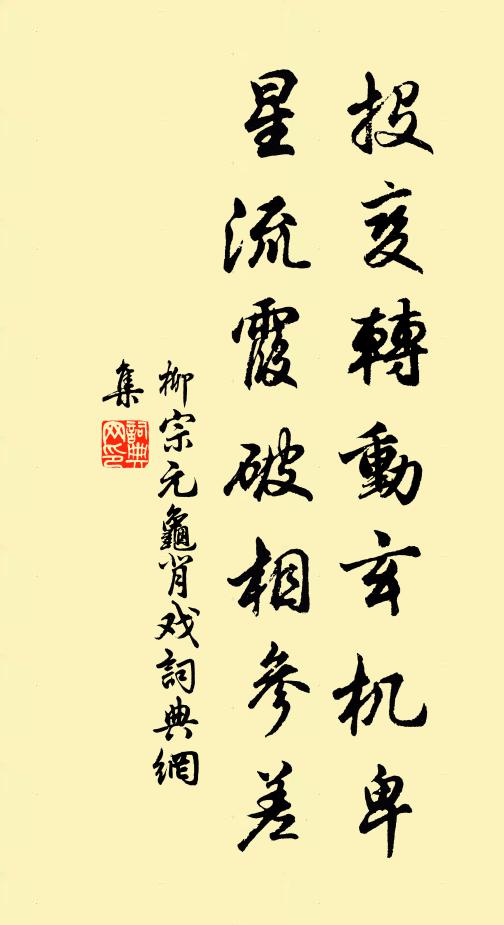 投变轉動玄机卑
星流霞破相參差
柳宗元龜背戏詞典網
集
詞典
网印